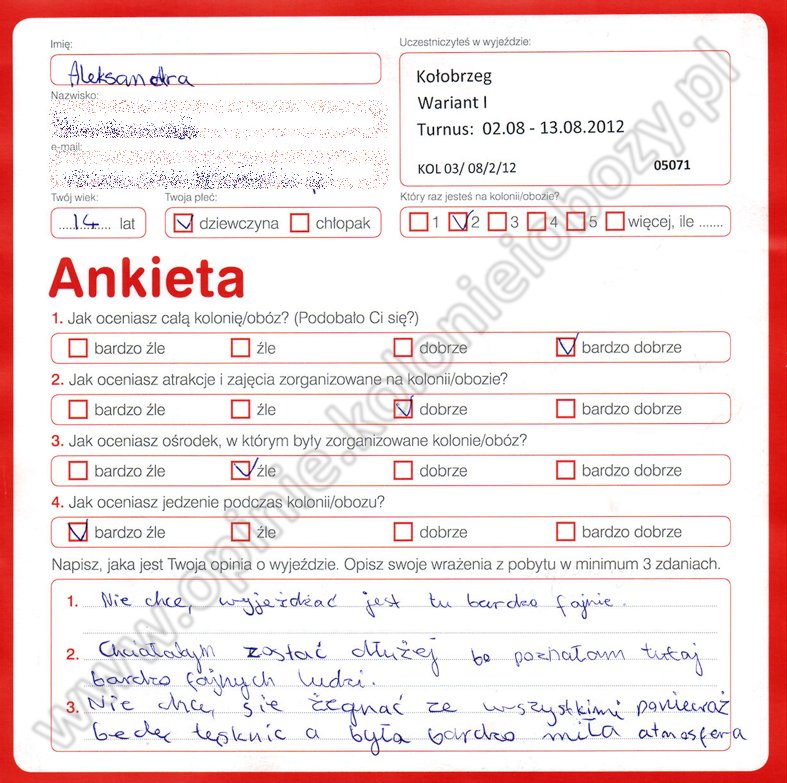 Imię:
Aleksandra
Nazwisko:
e-mail:
Uczestniczyłeś w wyjeździe:
Kołobrzeg
Wariant I
Turnus: 02.08 - 13.08.2012
KOL 03/ 08/2/12 05071
Twój wiek: Twoja płeć: Który raz jesteś na kolonii/obozie?
14 lat dziewczyna chłopak 1 2 3 4 5 więcej, ile .......
Ankieta
1. Jak oceniasz całą kolonię/obóz? (Podobało Ci się?)
bardzo źle źle dobrze bardzo dobrze
2. Jak oceniasz atrakcje i zajęcia zorganizowane na kolonii/obozie?
bardzo źle źle dobrze bardzo dobrze
3. Jak oceniasz ośrodek, w którym były zorganizowane kolonie/obóz?
bardzo źle źle dobrze bardzo dobrze
4. Jak oceniasz jedzenie podczas kolonii/obozu?
bardzo źle źle dobrze bardzo dobrze
Napisz, jaka jest Twoja opinia o wyjeździe. Opisz swoje wrażenia z pobytu w minimum 3 zdaniach.
1. Nie chcę, wyjeżdżać jest tu bardzo fajnie.
2. Chciałabym zostać dłużej bo poznałam tutaj
bardzo fajnych ludzi.
3. Nie chcę, się żegnać ze wszystkimi ponieważ
będę tęsknić a była bardzo miła atmosfera
www.opinie.kolonieiobozy.pl